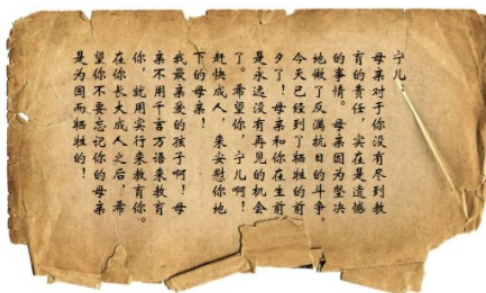 宁儿
母亲对于你没有尽到教
育的责任，实在是遗憾
的事情。母亲因为坚决
地做了反满抗日的斗争，
今天已经到了牺牲的前
夕了！母亲和你在生前
是永远没有再见的机会
了。希望你，宁儿啊！
赶快成人，来安慰你地
下的母亲！
我最亲爱的孩子啊！母
亲不用千言万语来教育
你，就用实行来教育你。
在你长大成人之后，希
望你不要忘记你的母亲
是为国而牺牲的！